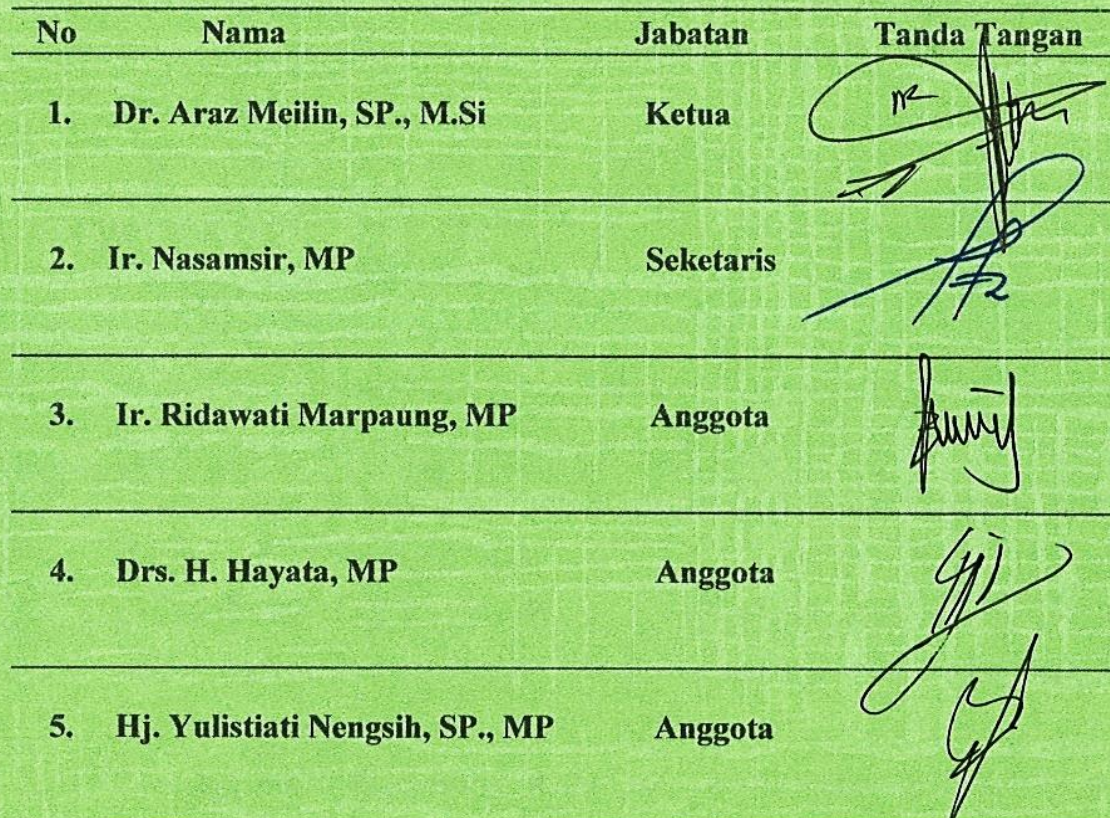 No Nama Jabatan Tanda Tangan
1. Dr. Araz Meilin, SP., M.Si Ketua
2. Ir. Nasamsir, MP Seketaris
3. Ir. Ridawati Marpaung, MP Anggota
4. Drs. H. Hayata, MP Anggota
5. Hj. Yulistiati Nengsih, SP., MP Anggota